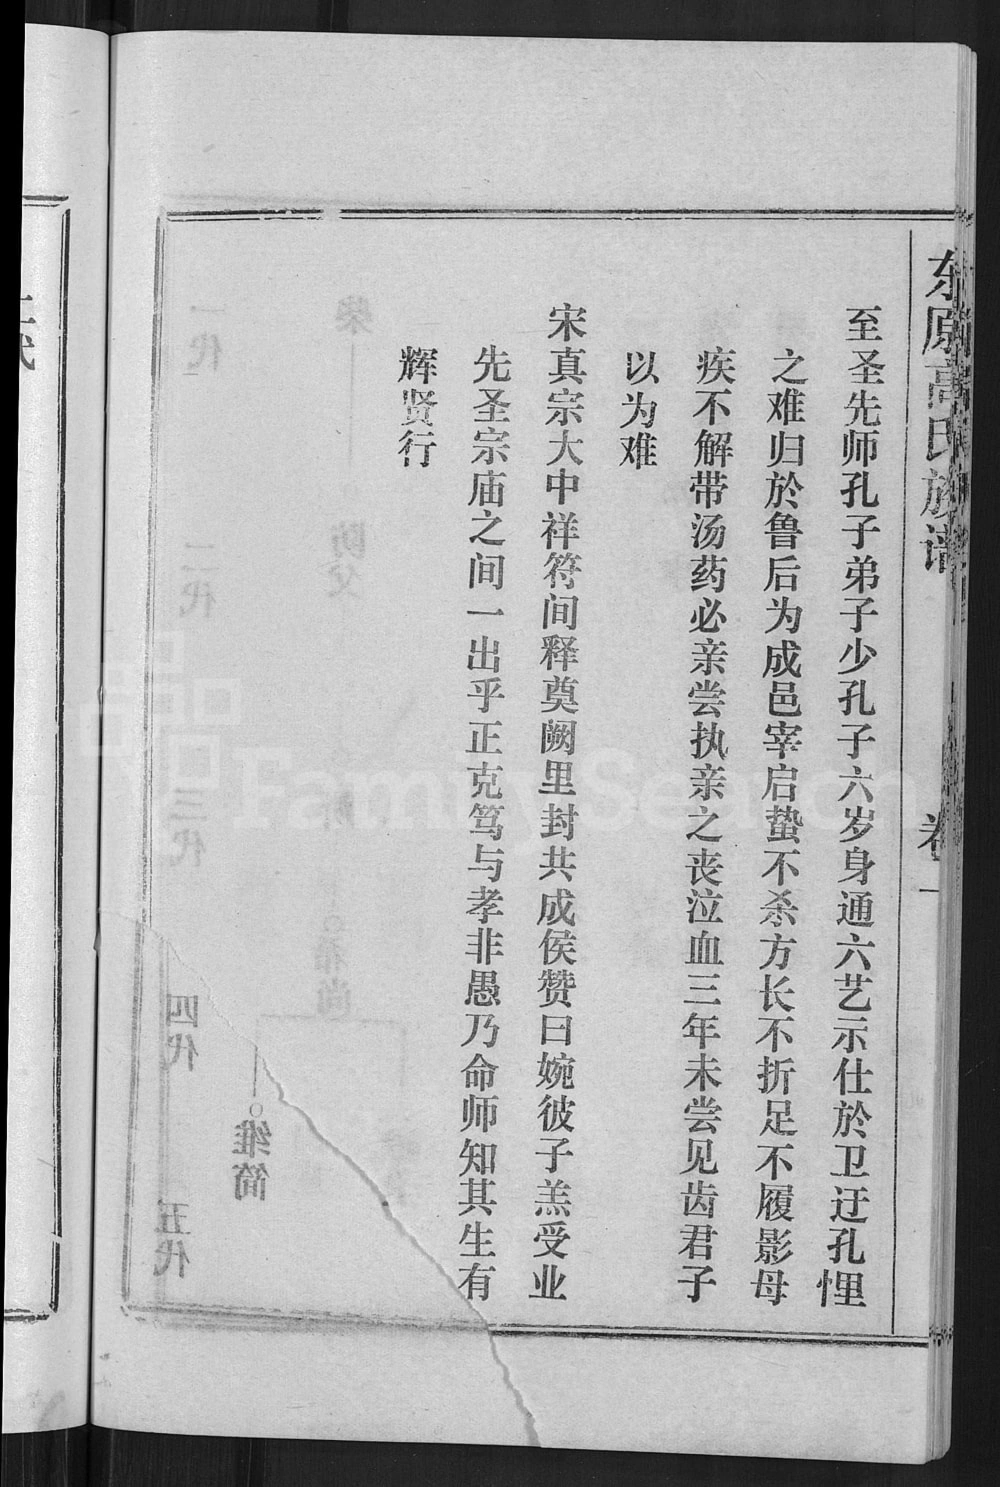 东原高氏族谱 卷一
至圣先师孔子弟子少孔子六岁身通六艺示仕於卫迂孔悝
之难归於鲁后为成邑宰启蛰不杀方长不折足不履影母
疾不解带汤药必亲尝执亲之丧泣血三年未尝见齿君子
以为难
宋真宗大中祥符间释奠阙里封共成侯赞曰婉彼子羔受业
先圣宗庙之间一出乎正克笃与孝非愚乃命师知其生有
辉贤行